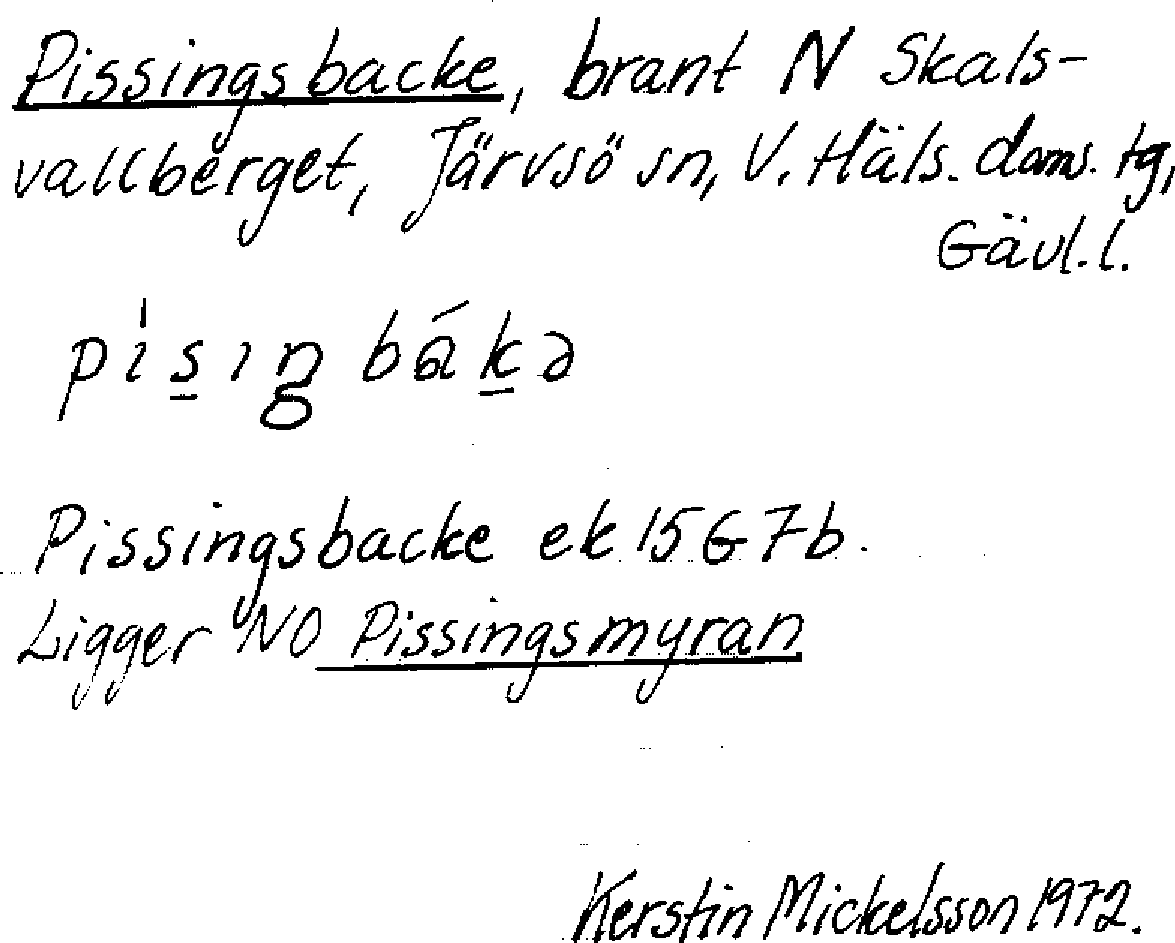 Pissingsbacke, brant N Skals-
vallberget, Järvsö sn, V. Häls. doms. tg,
Gävl. l.
pi̍s̱ıŋ bákə
Pissingsbacke ek 15G7b.
Ligger NO Pissingsmyran
Kerstin Mickelsson 1972.